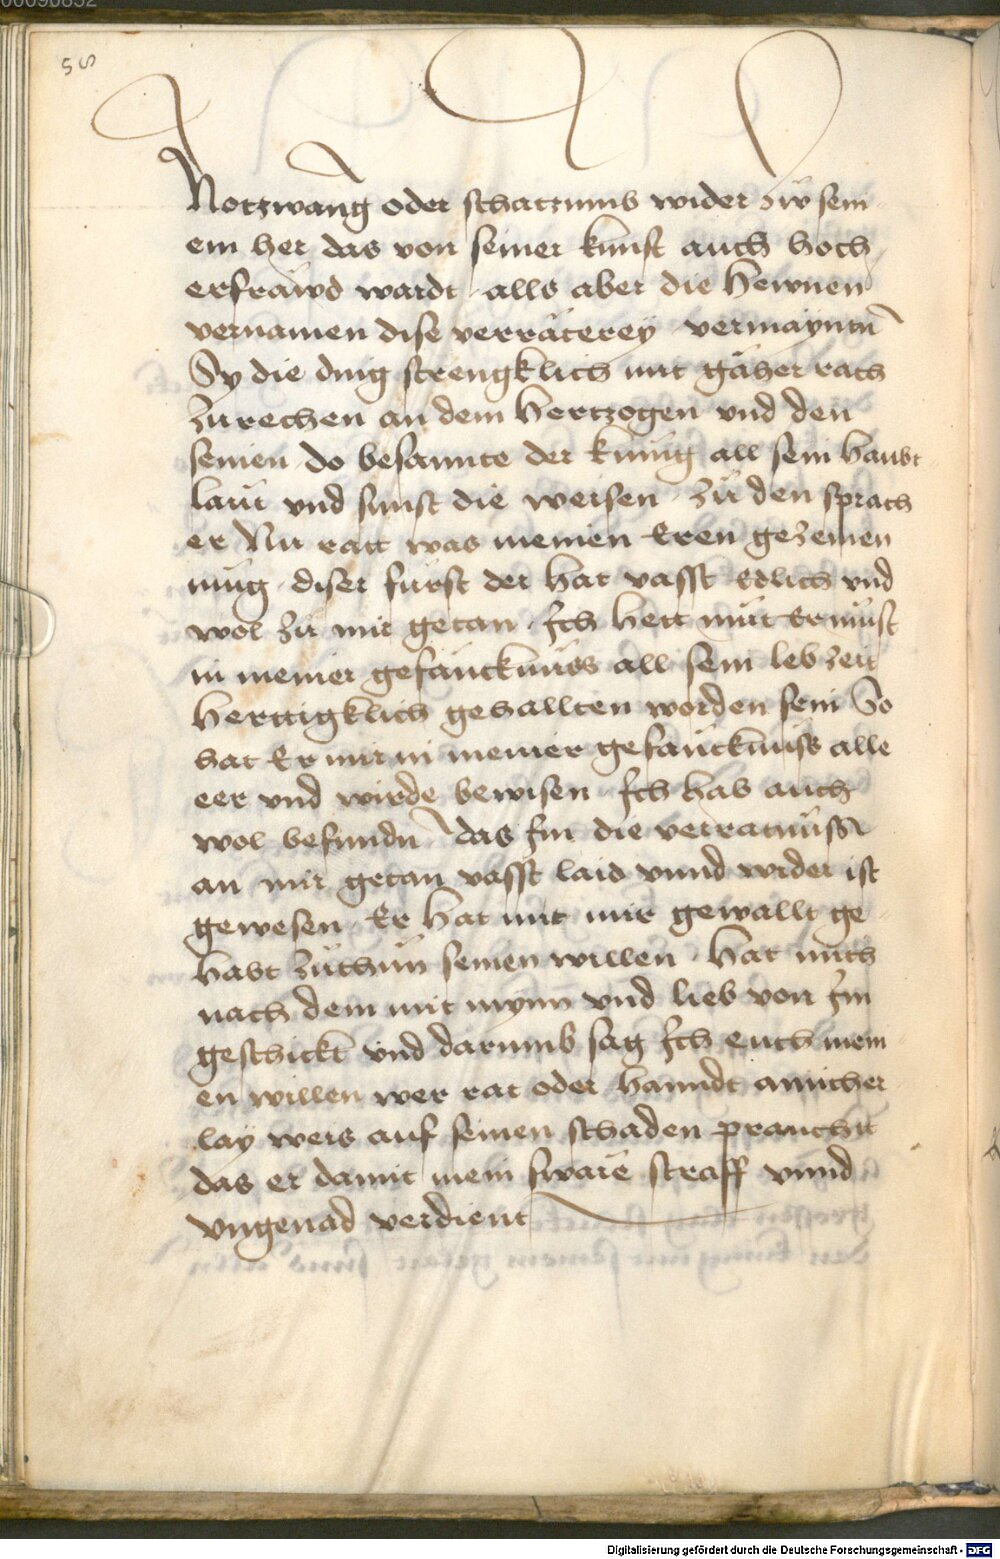 00090832
58
Notzwang oder schatzunng wider zw sein
ein her das von seiner kunft auch hoch
erfräwd wardt alls aber die hewnen
vernamen dise verräterey vermaynten
Sy die ding strengklich mit gäher rach
zurechen an dem hertzogen vnd den
seinen do besannte der kunig all sein haubt
laüt vnd sunst die weisen zü den sprach
er Nu ratt was meinen Eren gezemen
müg diser fürst der hat vasst Edlich vnd
wol zü mir getan Ich hett mut Er müst
in meiner gefänckhnüss all sein lebzeit
herttigklich gehallten worden sein So
hat Er mir in meiner gefänckhnüss alle
eer vnd wirde bewisen Ich hab auch
wol befunden das Im die verratnüss
an mir getan vasst laid vnnd wider ist
gewesen Er hat mit mir gewallt ge
habt züthün seinen willen hat mich
nach dem mit mynn vnd lieb von Im
geschickt vnd darumb sag Ich euch mein
en willen wer rat oder hanndt ainicher
lay weis auf seinen schaden praucht
das er damit mein sware straff vnnd
vngenad verdient
Digitalisierung gefördert durch die Deutsche Forschungsgemeinschaft - DFG